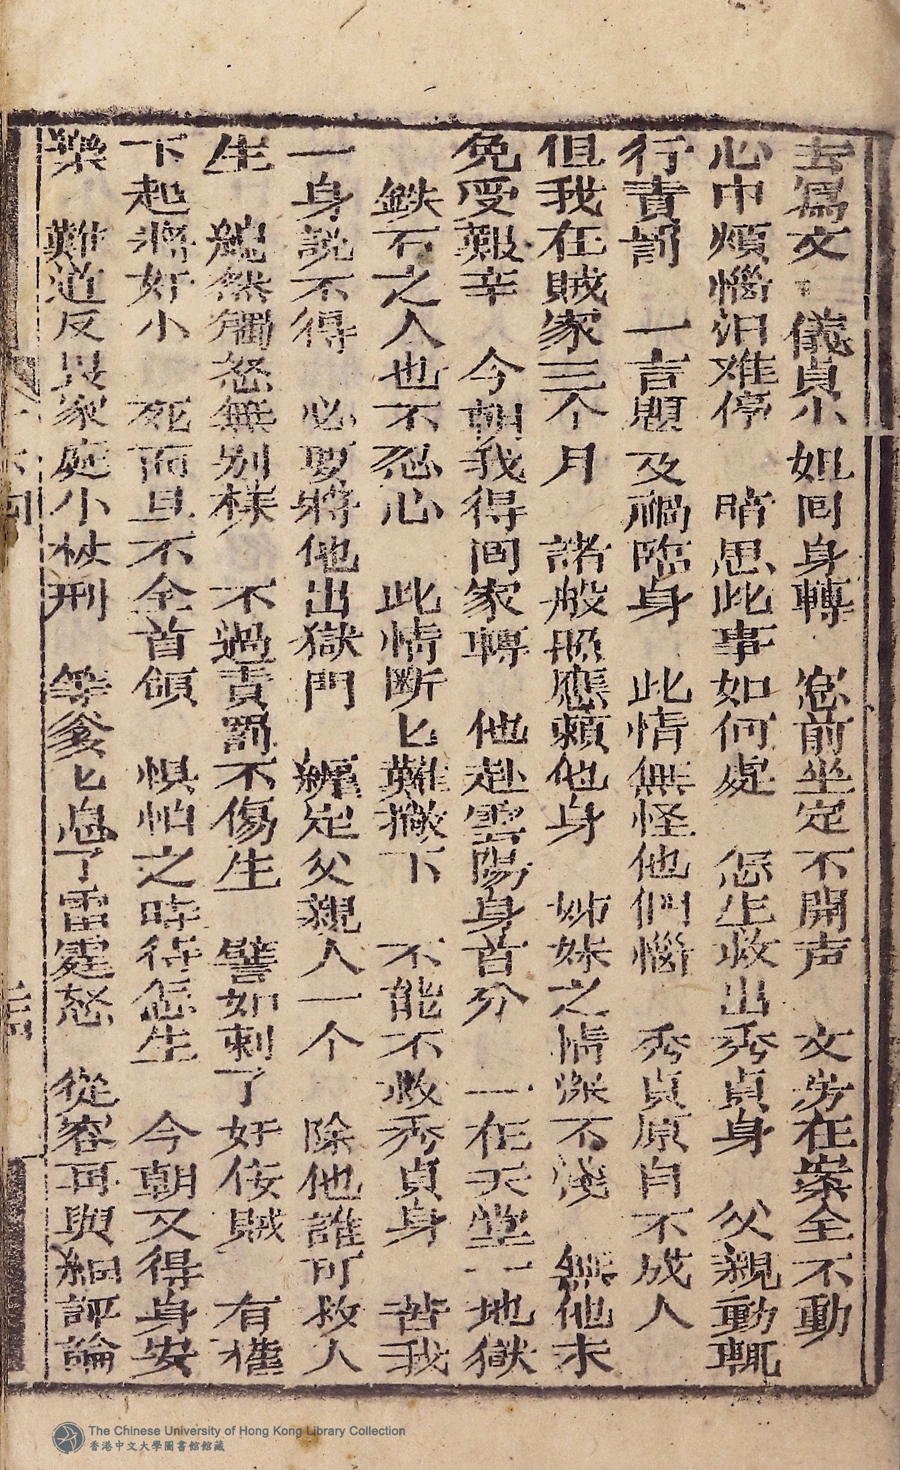 去為文 儀貞小姐回身轉 窓前坐定不開声 文房在案全不動
心中煩惱汨难停 暗思此事如何處 怎生救出秀貞身 父親動輒
行責罰 一言題及禍臨身 此情無怪他們惱 秀貞原自不成人
但我在賊家三个月 諸般照應賴他身 姊妹之情深不淺 無他未
免受艱辛 今朝我得回家轉 他赴雲陽身首分 一在天堂一地獄
鉄石之人也不忍心 此情断匕難撇下 不能不救秀貞身 苦我
一身説不得 必要將他出獄門 纒定父親人一个 除他誰可救人
生 縱然觸怒無別様 不過責罰不傷生 譬如刺了奸侫賊 有權
下起將奸小 死而且不全首領 惧怕之時待怎生 今朝又得身安
樂 難道反畏家庭小杖刑 等爹匕息了雷霆怒 從容再與細評論
The Chinese University of Hong Kong Library Collection
香港中文大學圖書館館藏